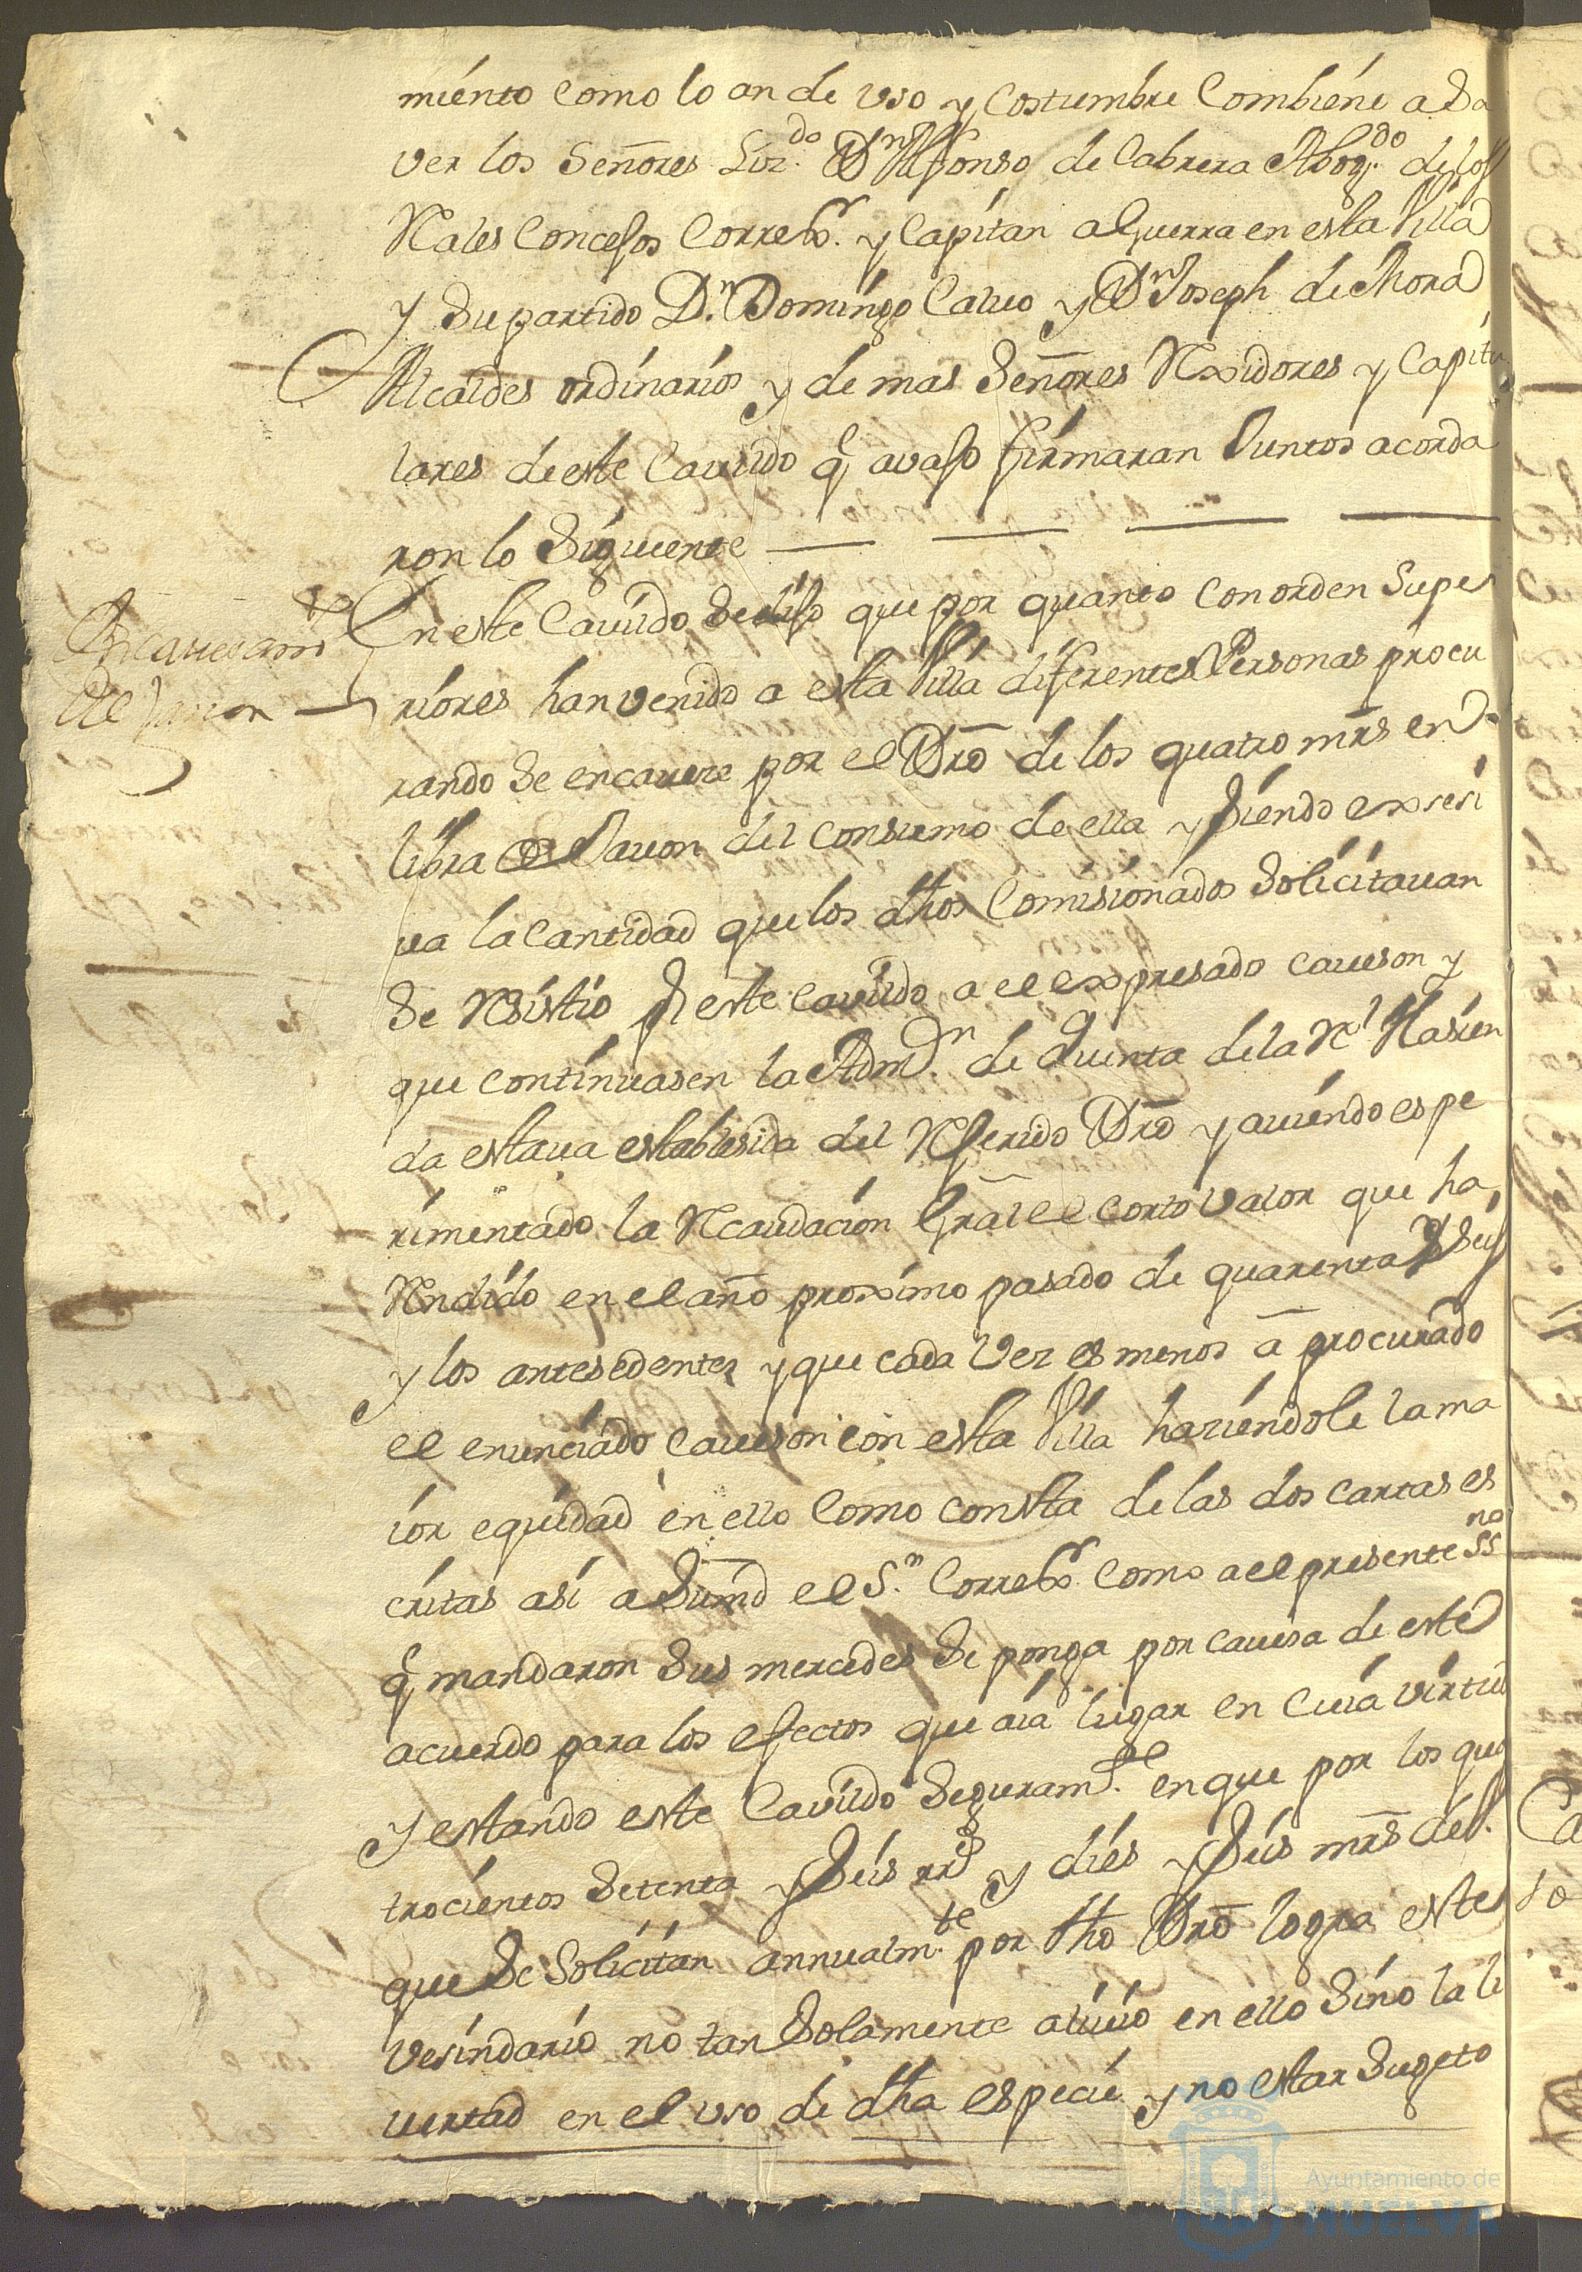 miento como lo an de uso y Costumbre Combiene a Sa
ver los Señores Lizdo. Dn Alfonso de Cabrera Abogdo. de los
Rales Concejos Correxr. y Capitan a Guerra en esta Villa
y Su partido Dn. Domingo Calvo y Dn Joseph de Mora
Alcaldes ordinarios y de mas Señores Rexidores y Capitu
lares de este Cavildo q avajo firmaran Juntos acorda
ron lo Siguiente
Encavesamto
del Javon
En este Cavildo Se dijo que por quanto con orden Supe
riores han venido a esta Villa diferentes Personas procu
rando Se encaveze por el Dro de los quatro mrs en
libra de Javon del consumo de ella y Siendo exsesi
va la Cantidad que los dhos Comisionados Solicitavan
Se Resistio Pr este Cavildo a el expresado caveson y
que continuasen la Admn. de Quenta de la Rl Hasien
da estava establesida del Referido Dro y aviendo espe
rimentado la Recaudacion Gral el corto valor que ha
Rendido en el año proximo pasado de quarenta y Seis
y los antesedentes y que cada vez es menos a procurado
el enunciado Caveson con esta Villa haziendole la ma
ior equidad en ello Como consta de las dos cartas es
critas asi a Sumd el Sr. Correxr. Como a el presente ssno
q mandaron Sus mercedes Se ponga por cavesa de este
acuerdo para los efectos que aia lugar en Cuia virtud
y estando este Cavildo Seguramte. en que por los qua
trocientos Setenta y Seis rrs y dies y Seis mrs de vn.
que Se Solicitan annualmte. por dho Dro logra este
Vesindario no tan Solamente alivio en ello Sino la li
vertad en el uso de dha especie y no estar Sugeto
Ayuntamiento de
HUELVA